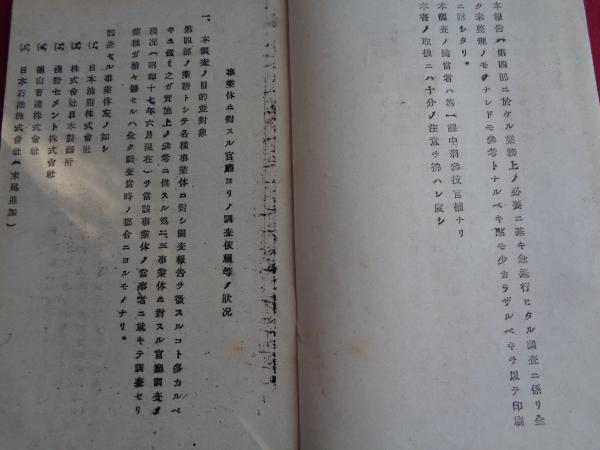 本報告ハ第四部ニ於ケル業務上ノ必要ニ基キ急遽行ヒタル調査ニ係リ全
ク未整理ノモノナレドモ參考トナルベキ點モ少カラザルベキヲ以テ印刷
ニ附シタリ。
本調査ノ擔當者ハ第一課中羽參技官補ナリ
本書ノ取扱ニハ十分ノ注意ヲ拂ハレ度シ
事業体ニ對スル官廳ヨリノ調査依頼等ノ狀況
一、本調査ノ目的並對象
第四部ノ業務トシテ各種事業体ニ對シ調査報告ヲ徴スルコト多カルベ
キニ鑑ミ之ガ實施上ノ參考ニ供スル爲二、三事業体ニ對スル官廳調査ノ
現況(昭和十七年六月現在)ヲ當該事業体ノ當事者ニ就キテ調査セリ
業種ガ稍々偏セルハ全ク調査當時ノ都合ニヨルモノナリ。
調査セル事業体左ノ如シ
日本油脂株式會社
株式會社日本製鋼所
淺野セメント株式會社
德山曹達株式會社
日本石油株式會社(末尾追加)